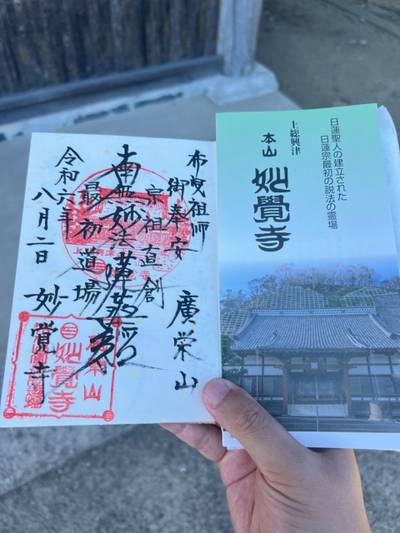 布曳祖師
御奉安
廣栄山
宗祖直創
南無妙法蓮華経
最初道場
令和六年
八月二日
妙覺寺
廣栄山
妙覺寺
日蓮聖人の建立された
日蓮宗最初の説法の霊場
上総興津
本山
妙覺寺